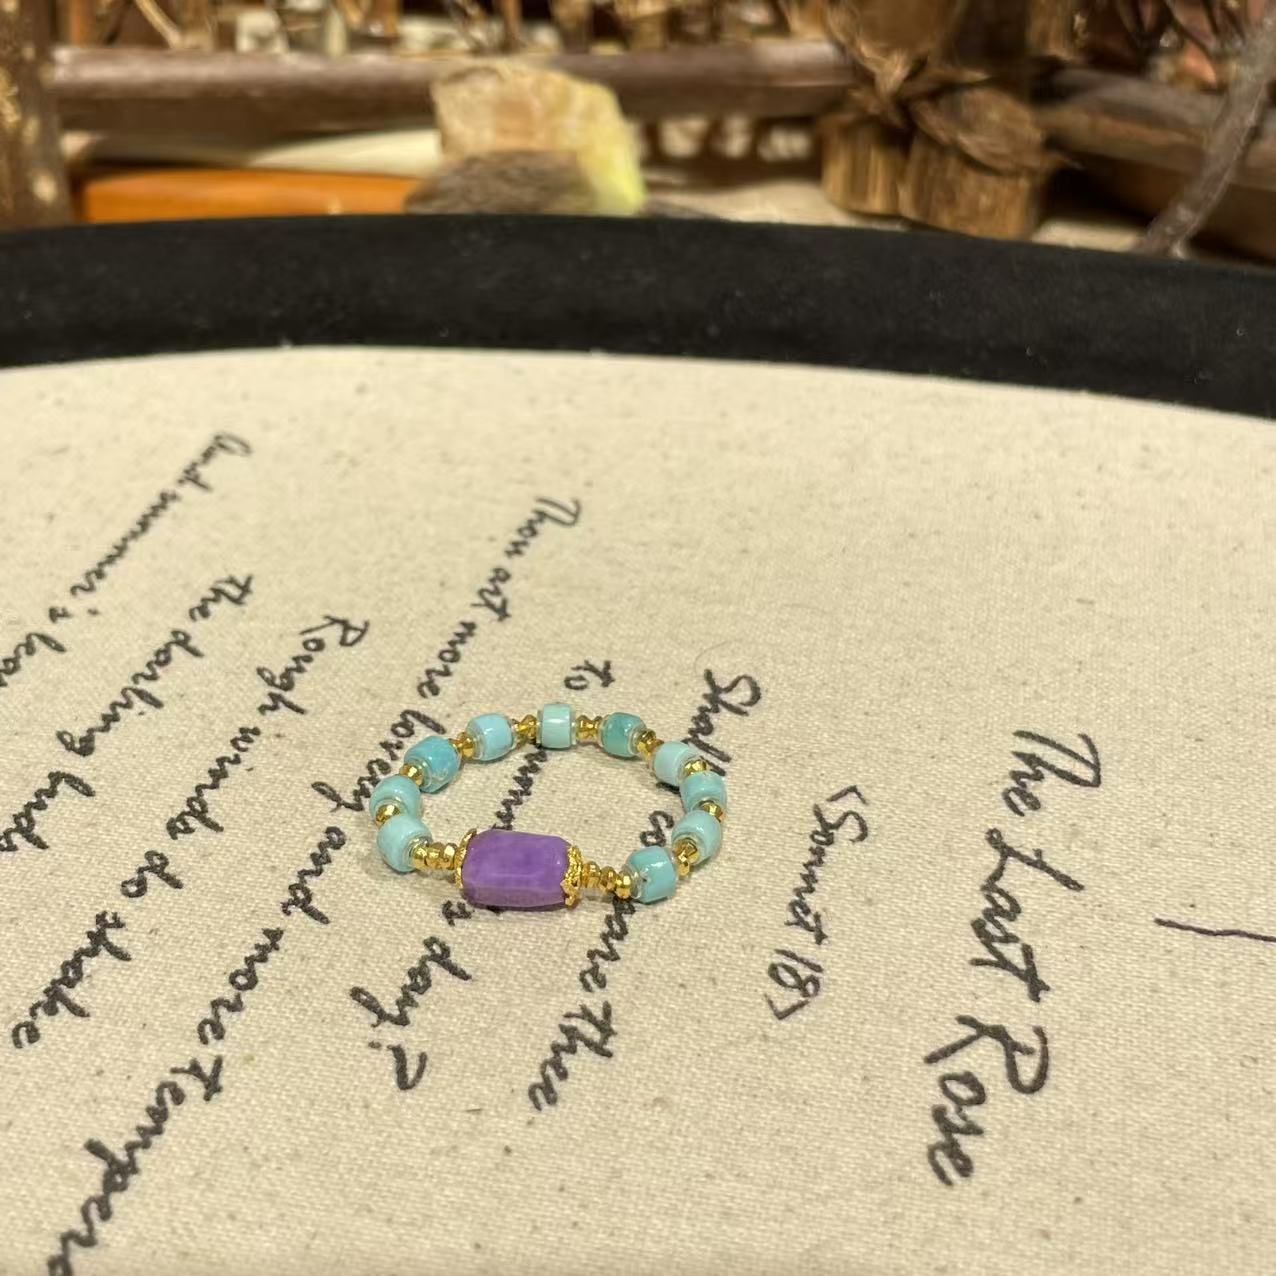 The Last Rose
<Sonnet 18>
Shall compare Thee
To summer's day?
Thou art more lovely and more Tempera
Rough winds do shake
The darling buds
And summer's lea